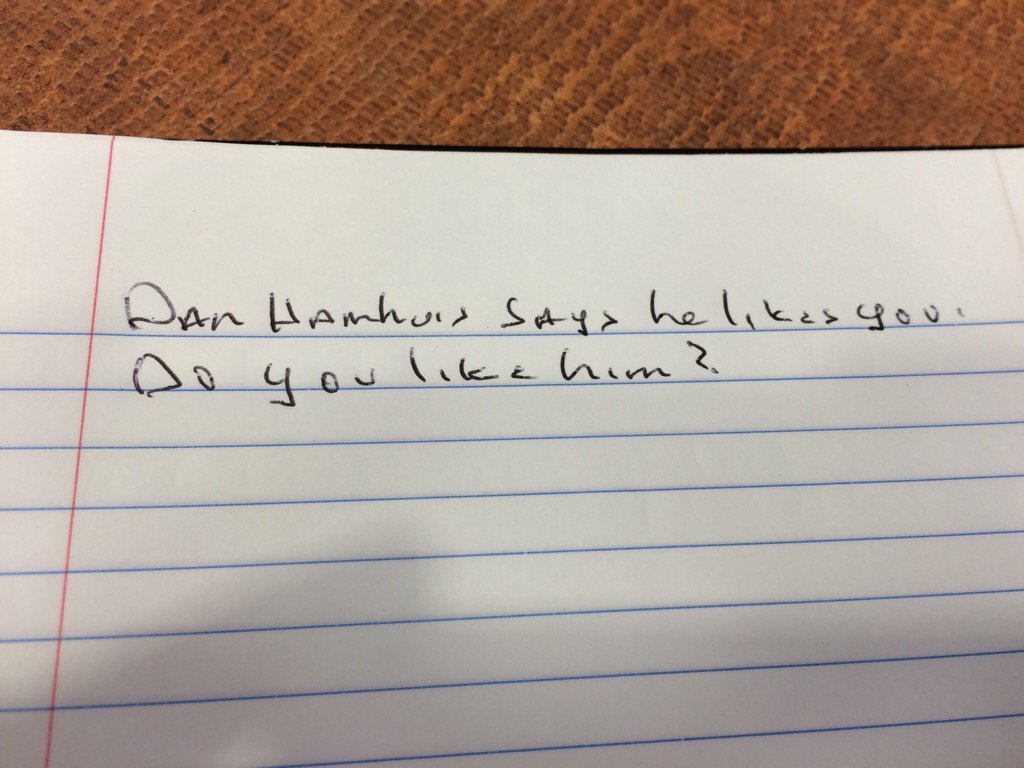 Dan Hamhuis says he likes you.
Do you like him?